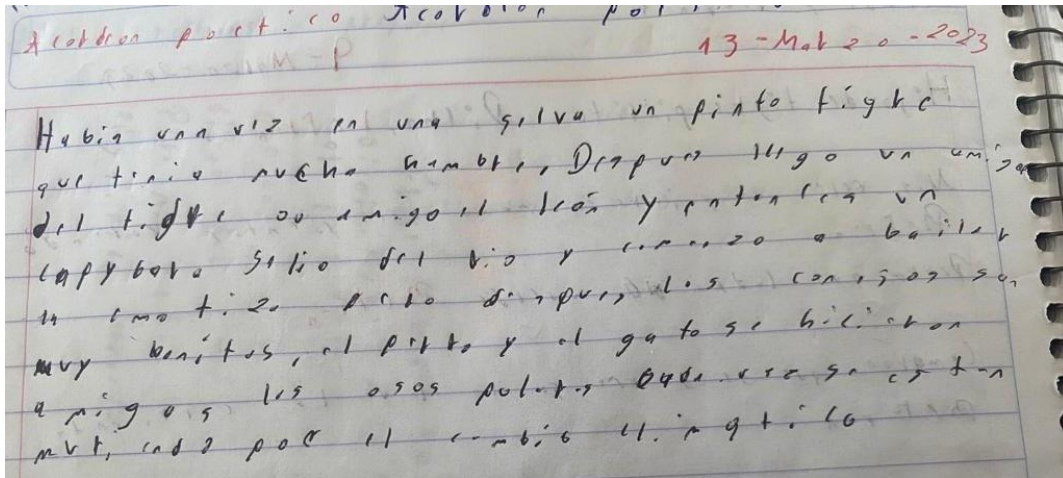 Acordeon poetico
13-Marzo-2023
Habia una vez en una selva un pinto tigre
que tenia mucha hambre, Despues llego un amigo
del tigre su amigo el león y entonces un
capybara salio del rio y comenzo a bailar
la pero despues los conejos son
muy bonitos, el perro y el gato se hicieron
amigos los osos polares cada vez se estan
muriendo por el cambio climatico